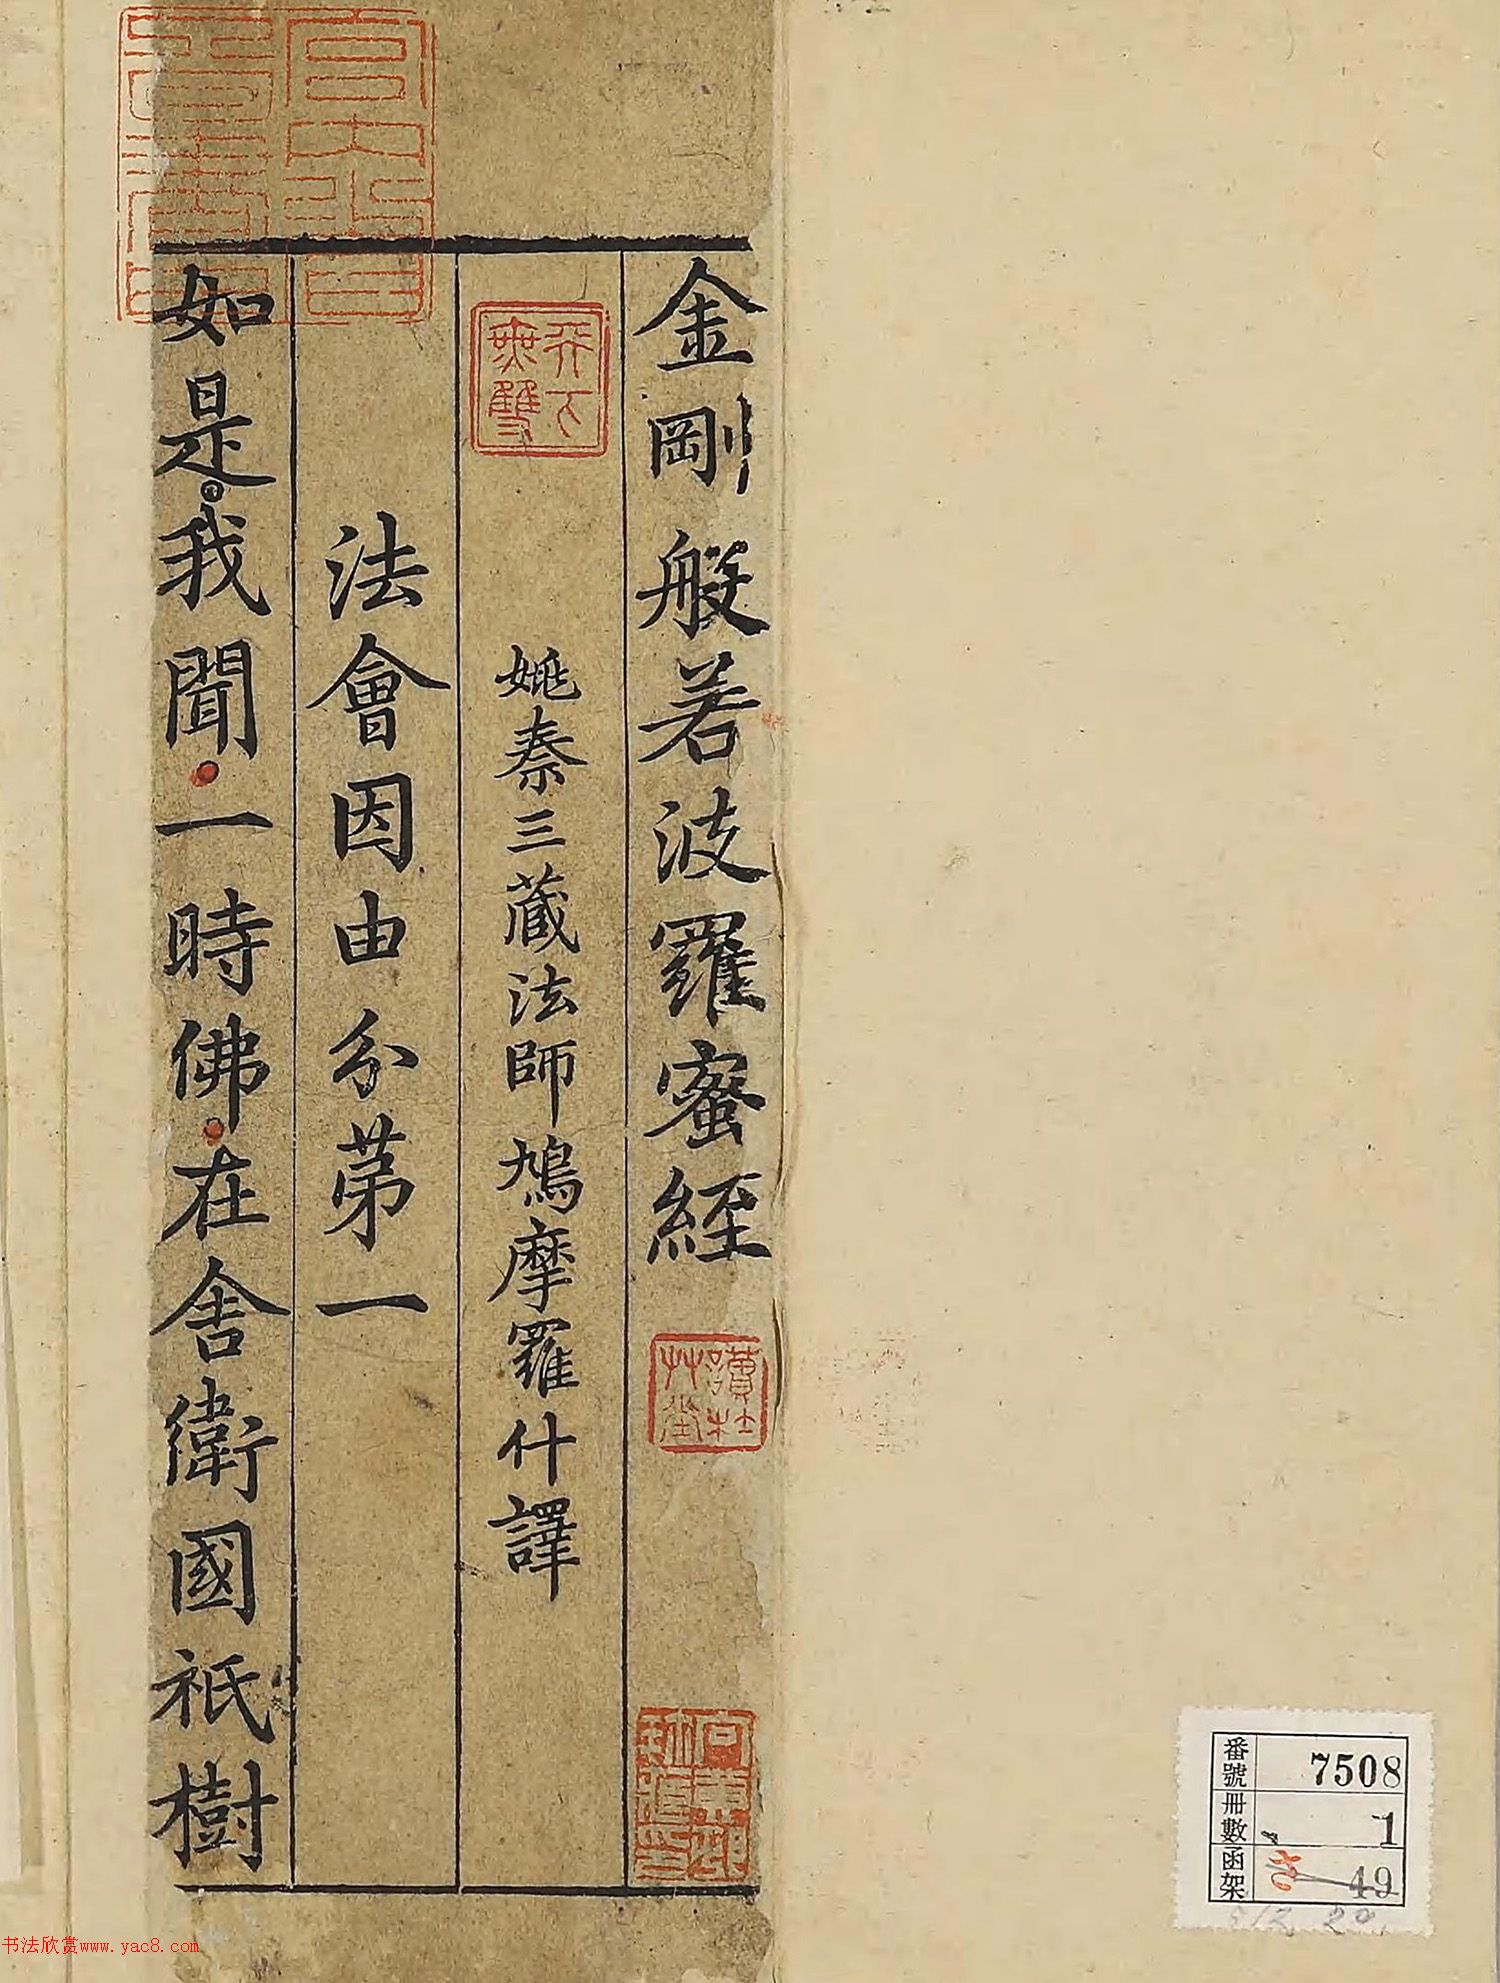 金剛般若波羅蜜經
姚秦三藏法師鳩摩羅什譯
法會因由分苐一
如是我聞一時佛在舍衛國祇樹
天下無雙
讀杜艸堂
番號 7508
冊數 1
函架 49
书法欣赏www.yac8.com